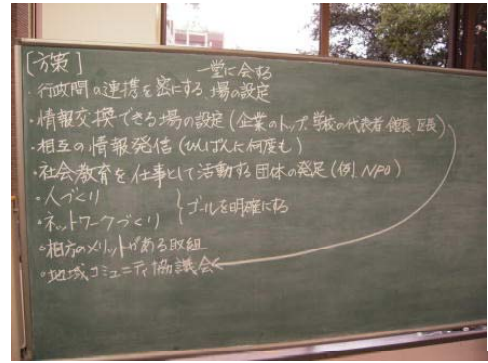 [方策]
一堂に会する
・行政間の連携を密にする 場の設定
・情報交換できる場の設定(企業のトップ、学校の代表者、館長、区長)
・相互の情報発信(ひんぱんに何度も)
・社会教育を仕事として活動する団体の発足(例. NPO)
・人づくり
・ネットワークづくり
ゴールを明確にする
・相方のメリットがある取組
・地域コミュニティ協議会